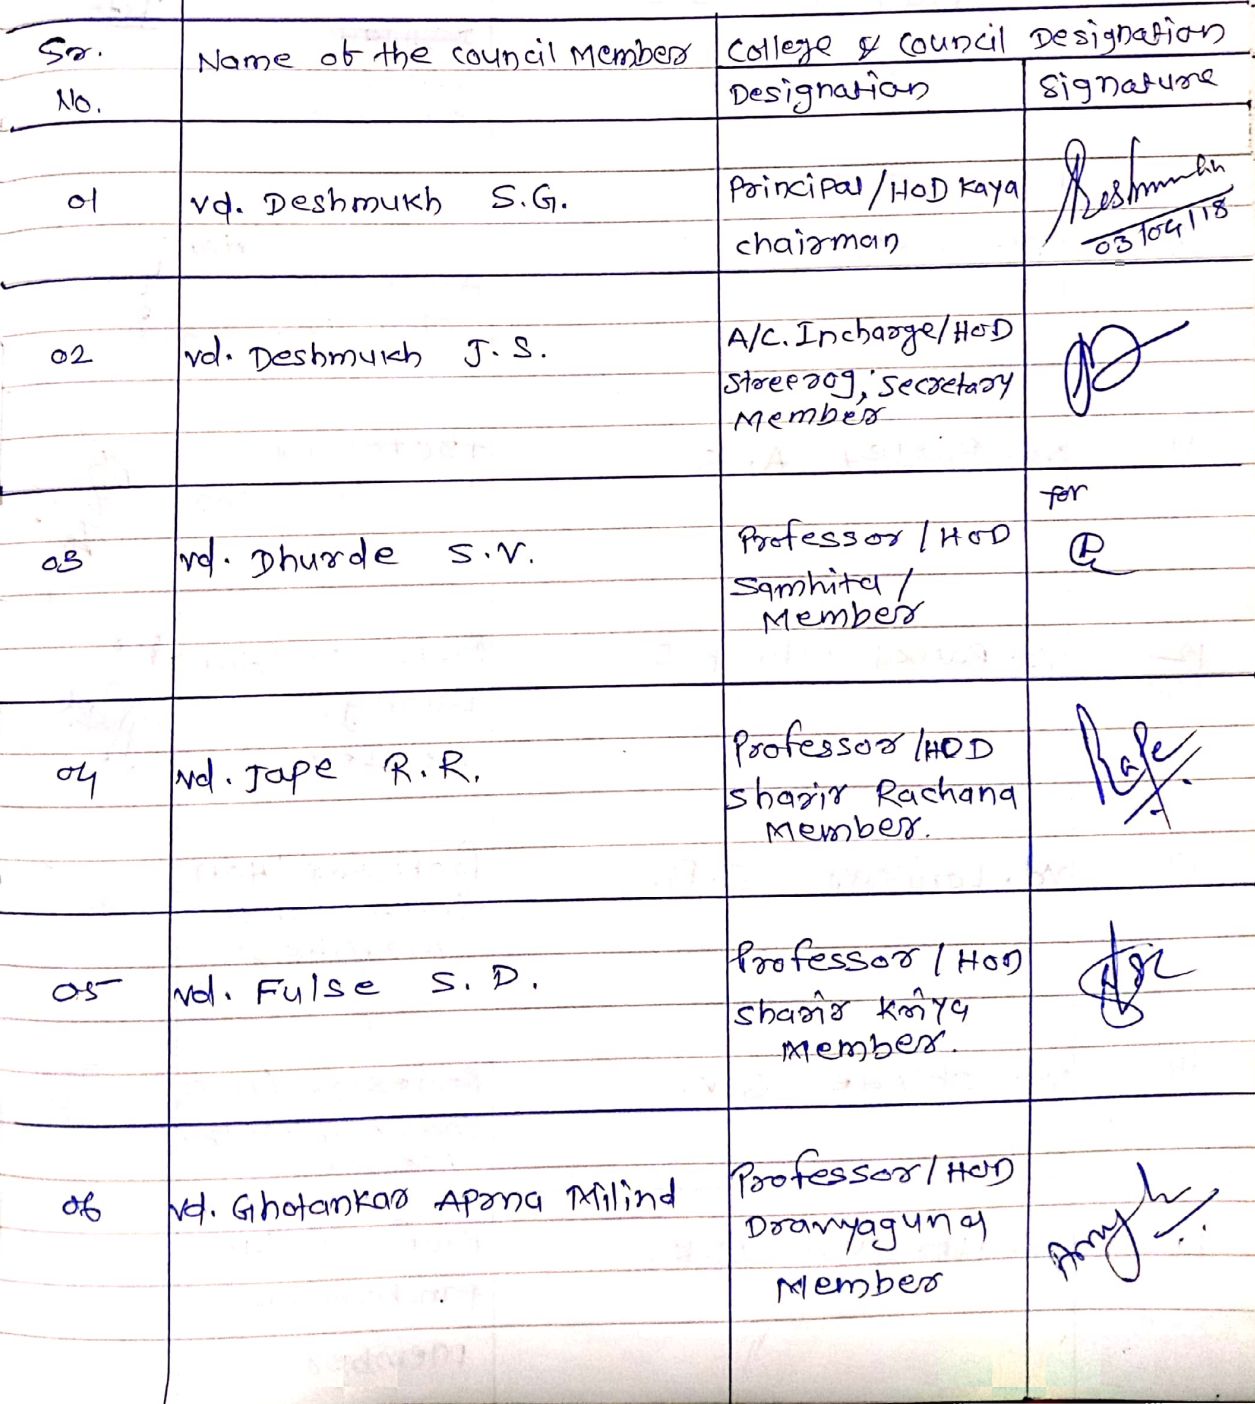 Sr. No.
Name of the Council Member
College & Council Designation
Designation
Signature
01
Vd. Deshmukh S.G.
Principal/HOD Kaya
chairman
Deshmukh
03/04/18
02
Vd. Deshmukh J.S.
A/C. Incharge/HOD
Streerog, Secretary
Member
03
Vd. Dhurde S.V.
Professor / HOD
Samhita /
Member
for
04
Vd. Jape R.R.
Professor /HOD
Sharir Rachana
Member.
05
Vd. Fulse S.D.
Professor / HOD
Sharir Kriya
Member.
06
Vd. Ghotankar Aprna Milind
Professor / HOD
Dravyaguna
Member